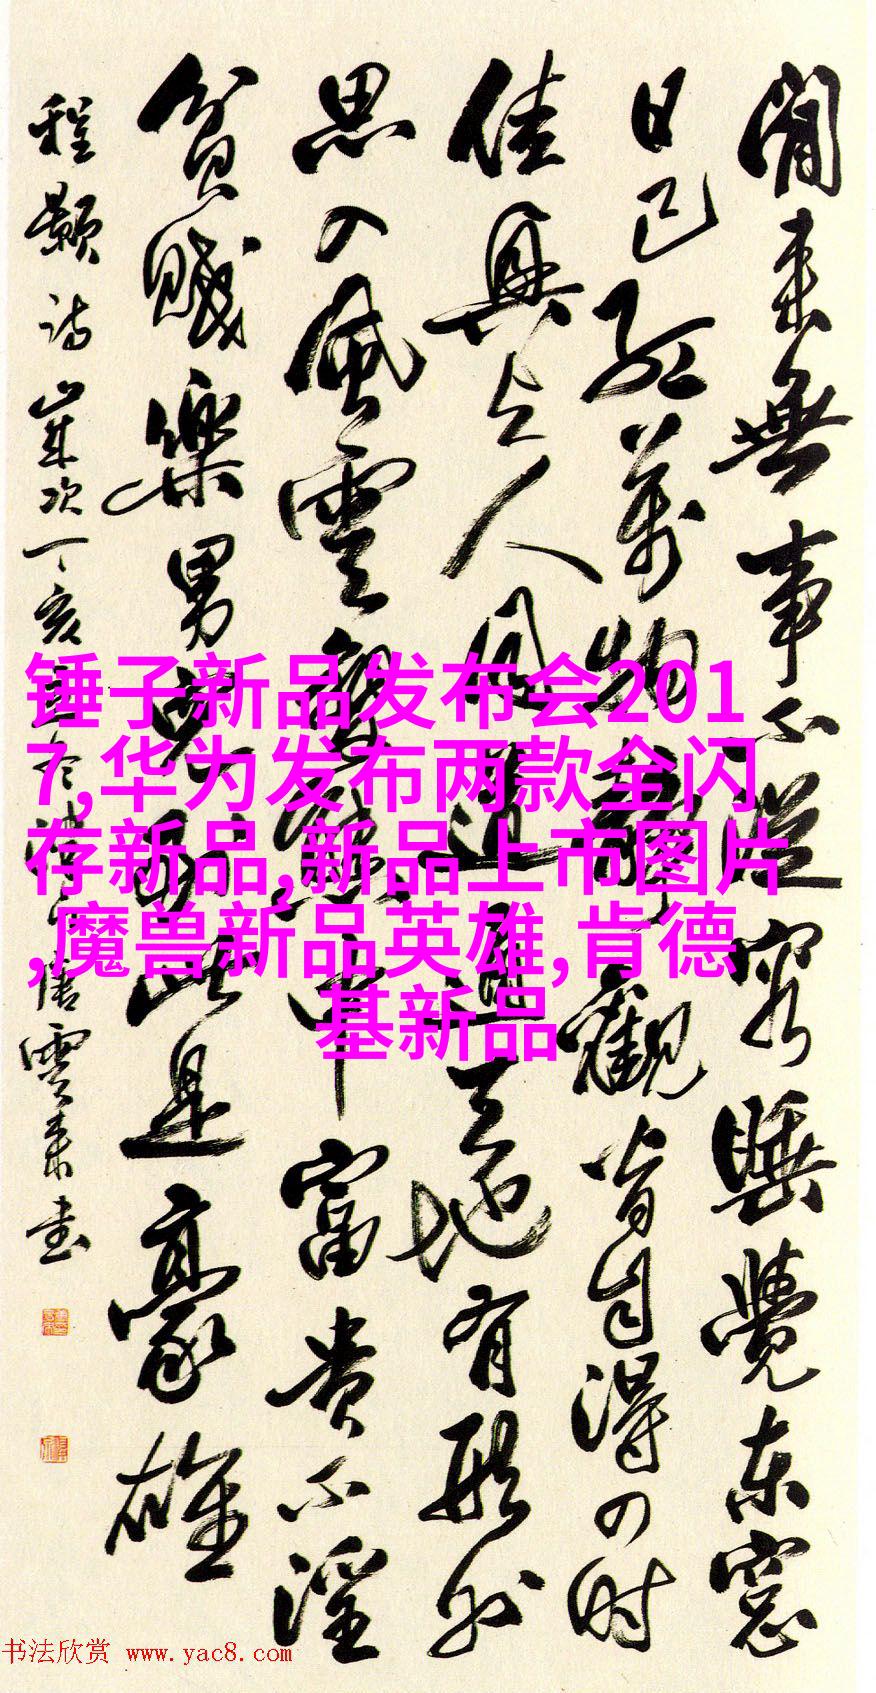 閒来無事不從容睡覺东窓
日已红萬物静觀皆自得四时
佳興与人同道通天地有形外
思入風雲變態中富贵不淫
貧賤樂男兒到此是豪雄
程颢诗歲次丁亥唐雲来书
锤子新品发布会201
7,华为发布两款全闪
存新品,新品上市图片
,魔兽新品英雄,肯德
基新品
书法欣赏 www.yac8.com